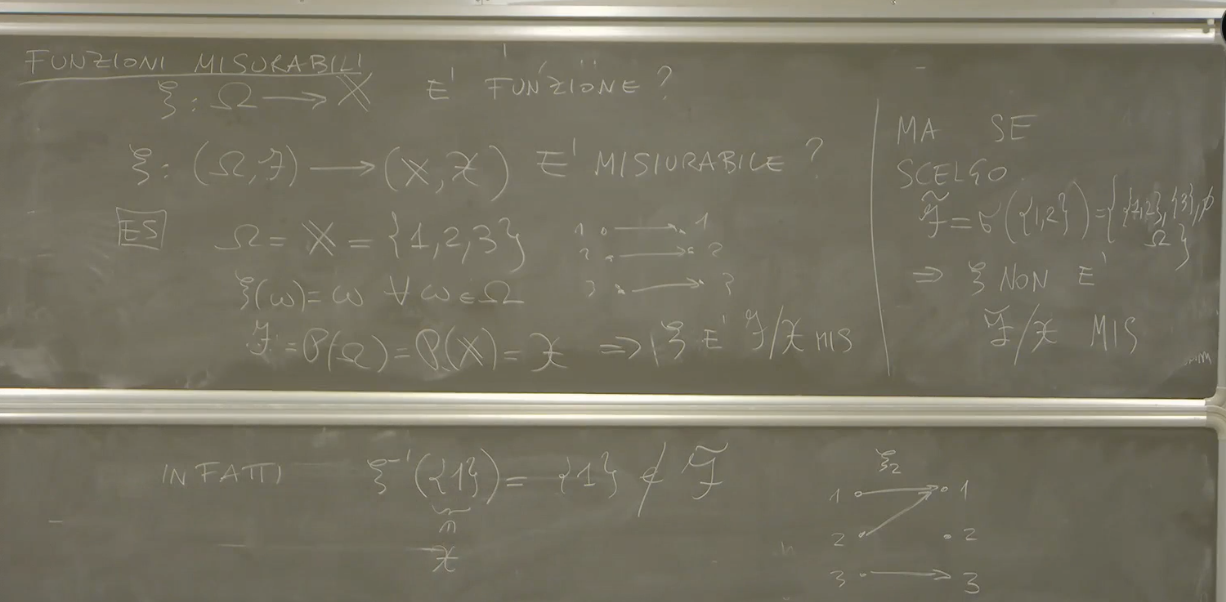 FUNZIONI MISURABILI
ξ : Ω → X E' FUNZIONE ?
ξ : (Ω, ℱ) → (X, 𝒳) E' MISIURABILE ?
ES Ω = X = {1,2,3}
1 → 1
2 → 2
3 → 3
ξ(ω) = ω ∀ ω ∈ Ω
ℱ = P(Ω) = P(X) = 𝒳 ⇒ ξ E' ℱ/𝒳 MIS
MA SE
SCELGO
ℱ̃ = σ({1,2}) = {{1,2}, {3}, ∅
Ω}
⇒ ξ NON E'
ℱ̃/𝒳 MIS
INFATTI ξ⁻¹({1}) = {1} ∉ ℱ̃
∩
𝒳
ξ₂
1 → 1
2 2
3 → 3